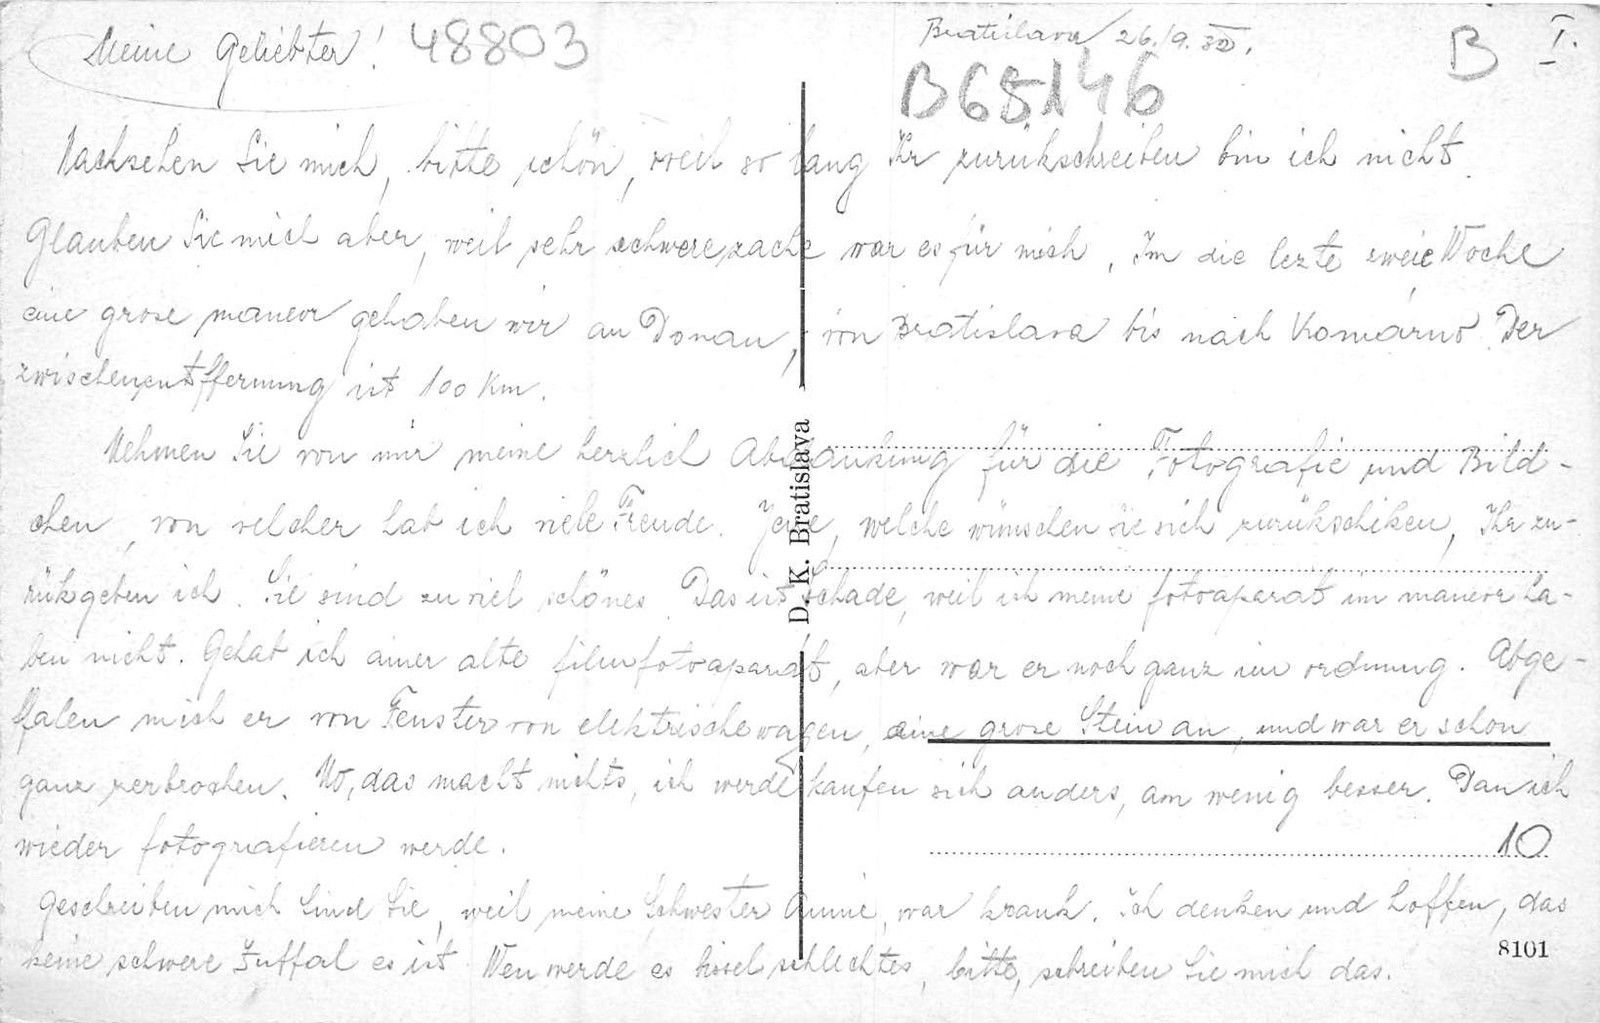 Meine Geliebter! 48803
Bratislava, 26./9. 
B I.
B65146
Nachsehen Sie mich, bitte schön, weil so lang Ihr zurükschreiben bin ich nicht.
Glauben Sie mich aber, weil sehr schwere zache war es für mich. Im die lezte zweie Woche
eine grose maneor gehaben wir an Donau, von Bratislava bis nach Komárno. Der
zwischenentffernung ist 100 Km.
Nehmen Sie von mir meine herzlich Abdankung für die Fotografie und Bild-
chen, von velcher hab ich viele Freude. Jene, welche wünschen Sie sich zurükschiken, Ihr zu-
rükgeben ich. Sie sind zu viel schönes. Das ist schade, weil ich meine fotoaparat im maneor ha-
ben nicht. Gehab ich ainer alte filmfotoaparat, aber war er noch ganz in ordnung. Abge-
ffalen mich er von Fenster von elektrischewagen, eine grose Stein an, und war er schon
ganz zerbrochen. No, das macht nichts, ich werde kaufen sich anders, am wenig besser. Dan ich
wieder fotografieren werde.
10
Geschreiben mich Sind Sie, weil meine Schwester Annie, war krank. Ich denken und hoffen, das
keine schwere Zuffal es ist. Wen werde es bissel schlechtes, bitte, schreiben Sie mich das.
D. K. Bratislava
8101